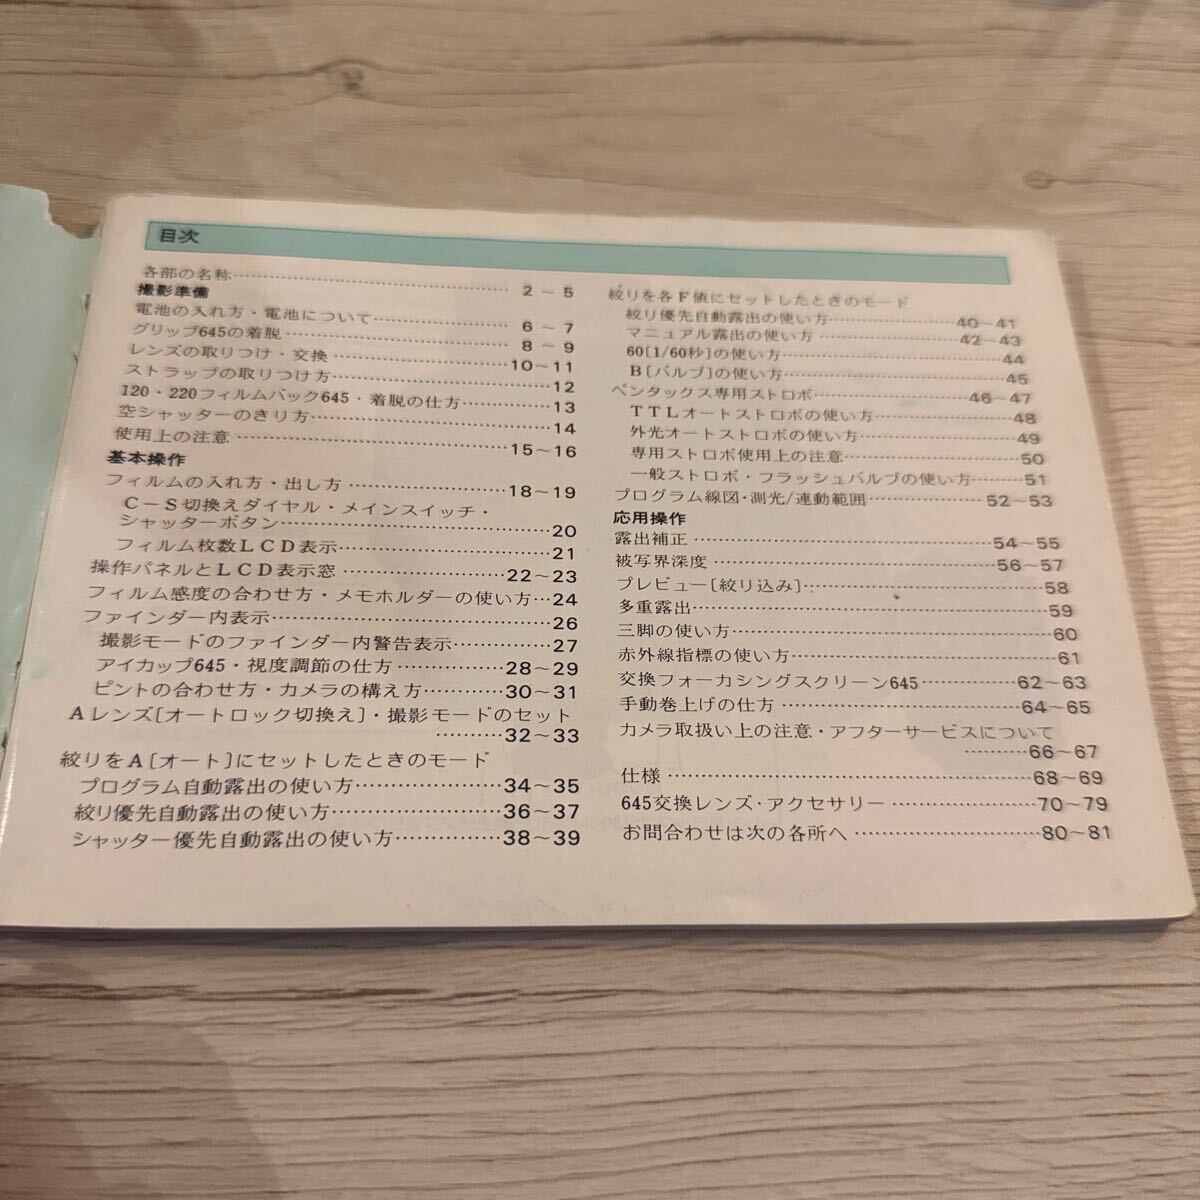 目次
各部の名称……………………………… 2 ～ 5
撮影準備
電池の入れ方・電池について……………… 6 ～ 7
グリップ645の着脱 ……………………… 8 ～ 9
レンズの取りつけ・交換 …………………10～11
ストラップの取りつけ方……………………… 12
120・220フィルムバック645・着脱の仕方…………13
空シャッターのきり方………………………… 14
使用上の注意 ………………………………15～16
基本操作
フィルムの入れ方・出し方 …………………18～19
C－S切換えダイヤル・メインスイッチ・
シャッターボタン……………………………20
フィルム枚数LCD表示………………………21
操作パネルとLCD表示窓 …………………22～23
フィルム感度の合わせ方・メモホルダーの使い方…24
ファインダー内表示……………………………26
撮影モードのファインダー内警告表示…………27
アイカップ645・視度調節の仕方 ……………28～29
ピントの合わせ方・カメラの構え方 …………30～31
Aレンズ[オートロック切換え]・撮影モードのセット
…………32～33
絞りをA[オート]にセットしたときのモード
プログラム自動露出の使い方…………………34～35
絞り優先自動露出の使い方……………………36～37
シャッター優先自動露出の使い方……………38～39
絞りを各F値にセットしたときのモード
絞り優先自動露出の使い方………………40～41
マニュアル露出の使い方 …………………42～43
60[1/60秒]の使い方……………………………44
B[バルブ]の使い方……………………………45
ペンタックス専用ストロボ……………………46～47
TTLオートストロボの使い方…………………48
外光オートストロボの使い方……………………49
専用ストロボ使用上の注意………………………50
一般ストロボ・フラッシュバルブの使い方………51
プログラム線図・測光/連動範囲………………52～53
応用操作
露出補正 ………………………………………54～55
被写界深度 ……………………………………56～57
プレビュー[絞り込み]……………………………58
多重露出……………………………………………59
三脚の使い方………………………………………60
赤外線指標の使い方………………………………61
交換フォーカシングスクリーン645……………62～63
手動巻上げの仕方 ……………………………64～65
カメラ取扱い上の注意・アフターサービスについて
…………66～67
仕様 ……………………………………………68～69
645交換レンズ・アクセサリー …………………70～79
お問合わせは次の各所へ ………………………80～81